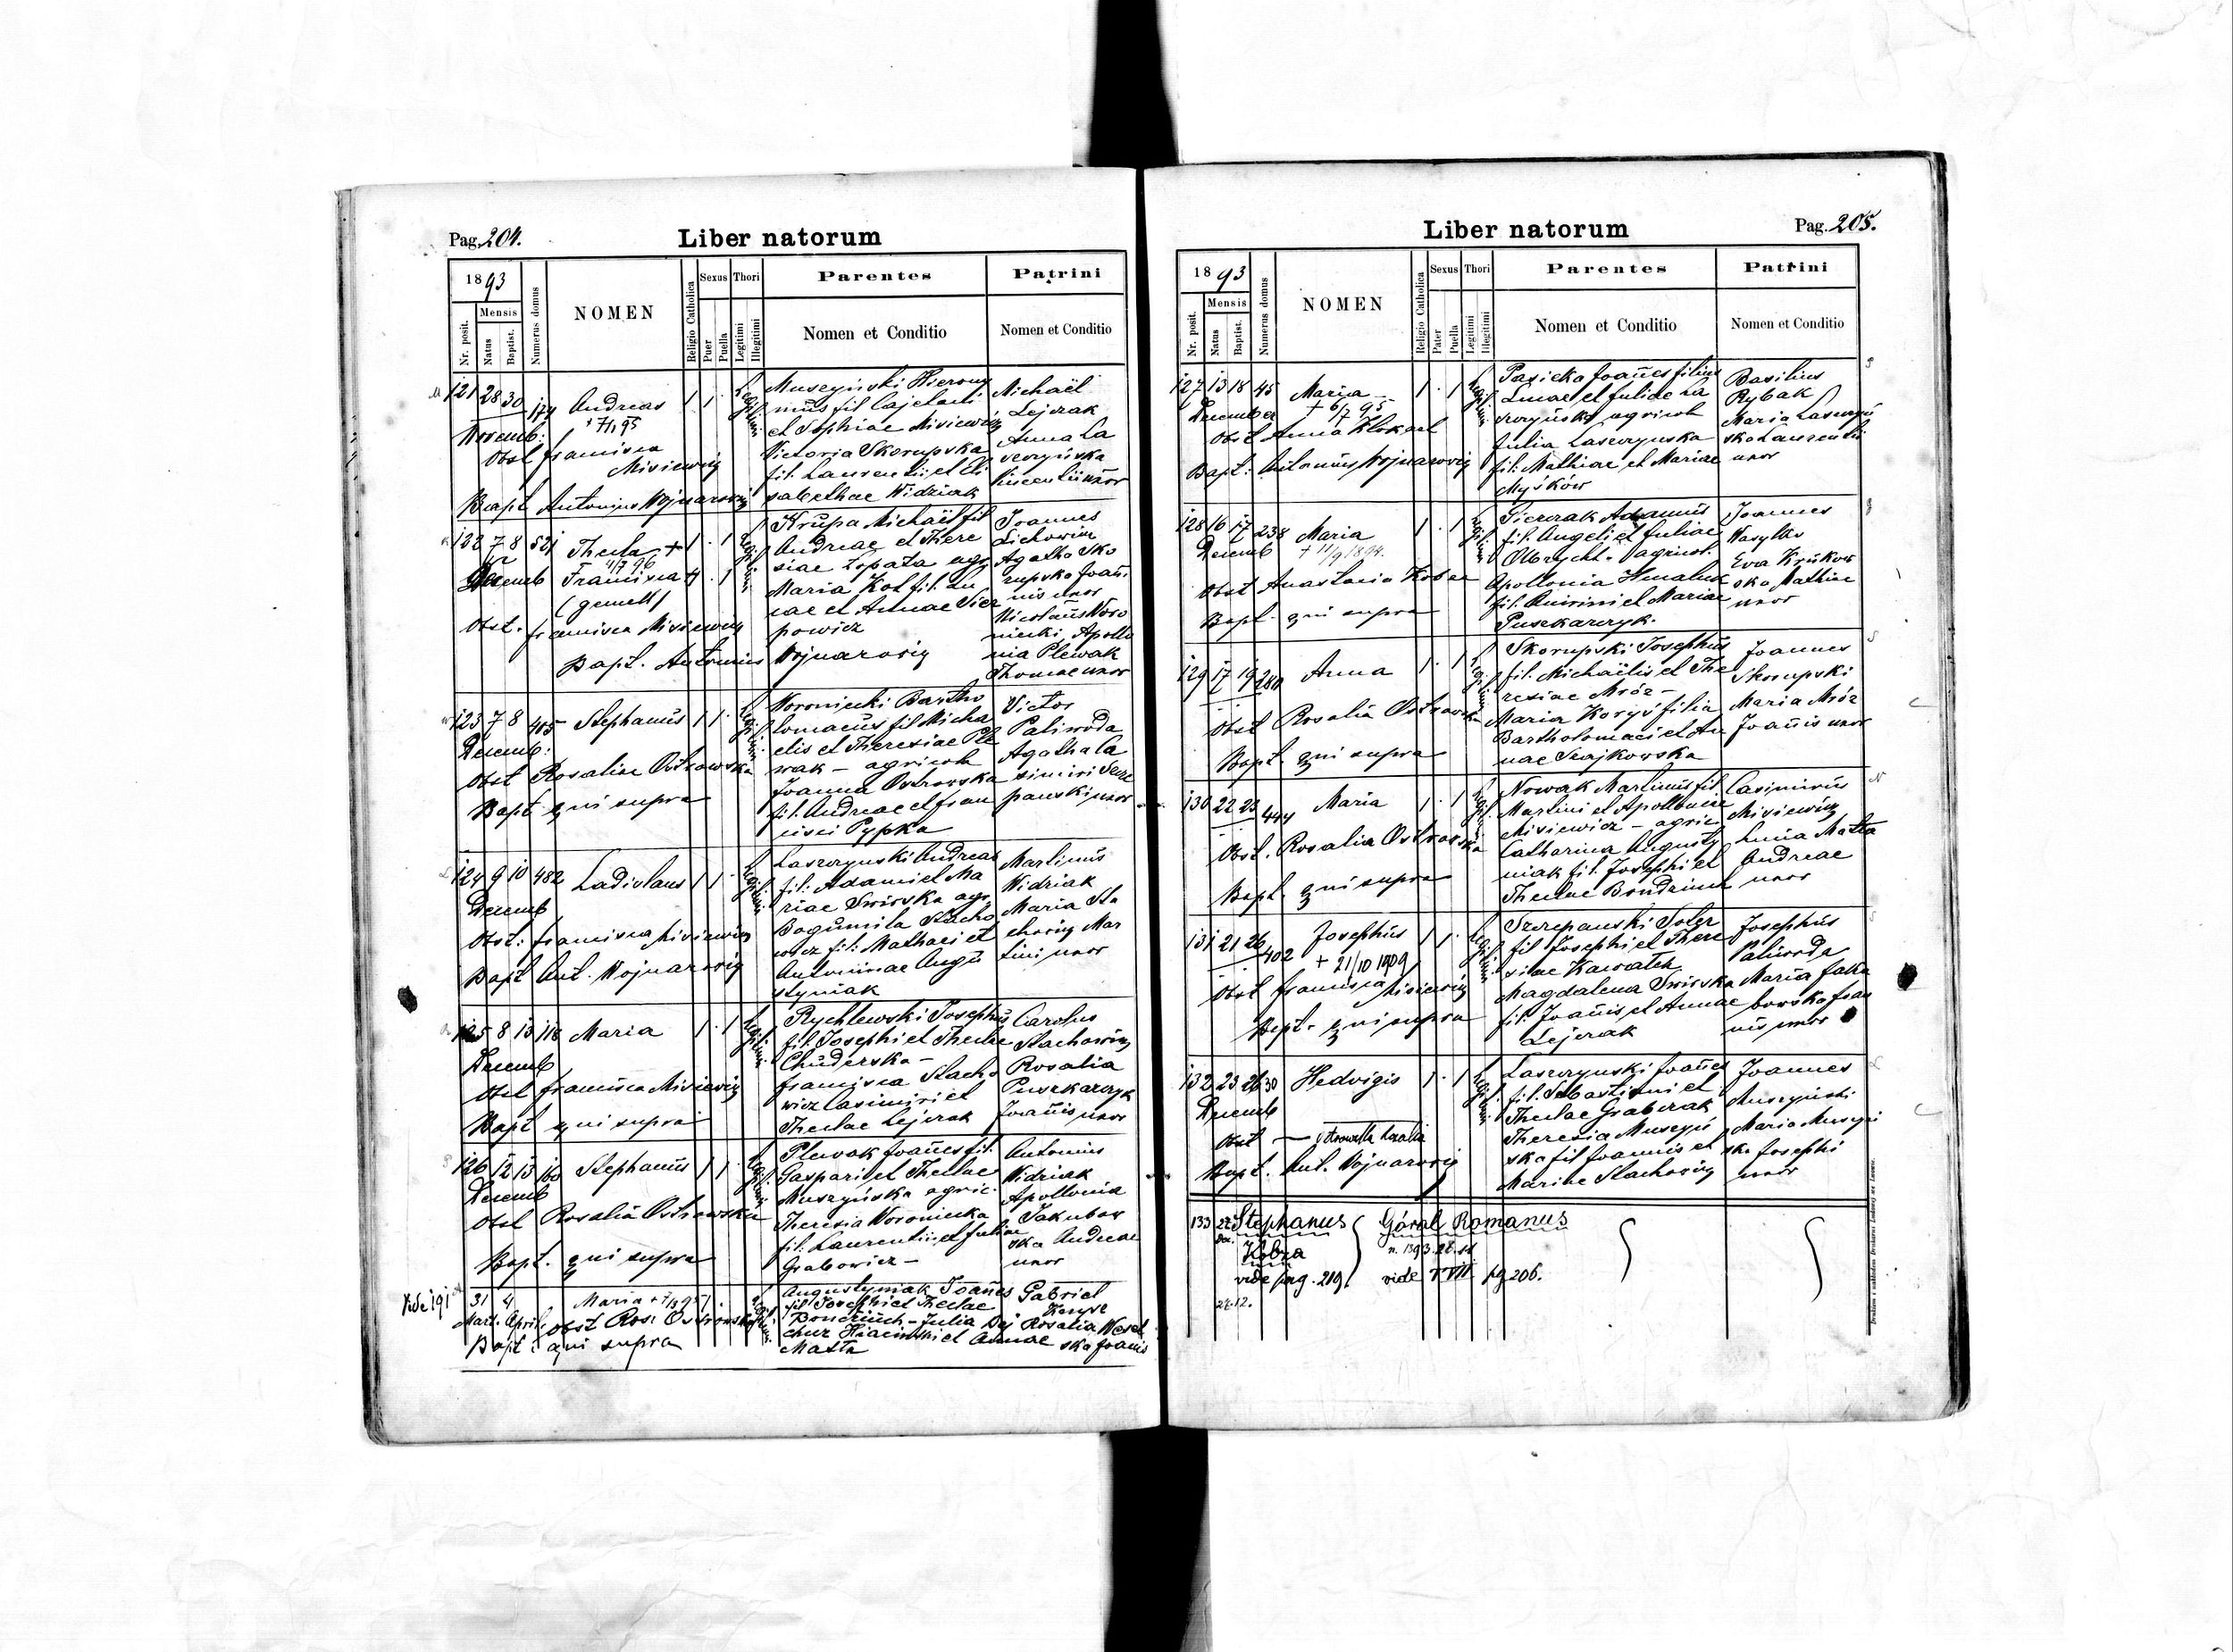 Pag. 204.
Liber natorum
1893
Nr. posit.
Mensis
Natus
Baptist.
Numerus domus
NOMEN
Religio Catholica
Sexus
Puer
Puella
Thori
Legitimi
Illegitimi
Parentes
Nomen et Conditio
Patrini
Nomen et Conditio
121 28 30 174 Andreas 1 1
Novemb:
Obst Francisca
Misiewicz
Bapt Antonius Wojnarowicz
Muszyński Hierony
mus fil Cajetani
et Sophiae Misiewicz
Victoria Skorupska
fil. Laurentii et Eli
sabethae Widziak
Michaël
Lejczak
Anna La
szczyńska
Vincentii uxor
122 7 8 521 Thecla +
Decemb Francisca
(gemell)
Obst. Francisca Misiewicz
Bapt. Antonius Wojnarowicz
Krupa Michaël fil
Andreae et There
siae Łopata agr.
Maria Kot fil. Lu
cae et Annae Sier
powicz
Joannes
Agatha Sko
rupska Joañ
nis uxor
Nicolaus Woro
niecki Apollo
nia Plewak
Thomae uxor
123 7 8 405 Stephanus 1 1
Decemb:
Obst Rosalia Ostrowska
Bapt qui supra
Woroniecki Bartho
lomaeus fil Micha
elis et Theresiae Ple
wak – agricola
Joanna Ostrowska
fil. Andreae et Fran
cisci Pypka
Victor
Paliwoda
Agatha Ca
simiri Szcze
panski uxor
124 9 10 482 Ladislaus 1 1
Decemb
Obst: Francisca Misiewicz
Bapt Ant. Wojnarowicz
Laszczynski Andreas
fil: Adami et Ma
riae Swirska agr.
Bogumila Stacho
wicz fil: Mathaei et
Antoninae Augu
styniak
Martinus
Widziak
Maria Sta
chowicz Mar
tini uxor
125 8 13 118 Maria 1 1
Decemb
Obst Francisca Misiewicz
Bapt qui supra
Rychlewski Josephus
fil. Josephi et Theclae
Chuderska –
Francisca Stacho
wicz Casimiri et
Theclae Lejczak
Carolus
Stachowicz
Rosalia
Puszkarczyk
Joañis uxor
126 12 13 160 Stephanus 1 1
Decemb
Obst Rosalia Ostrowska
Bapt. qui supra
Plewak Joañes fil.
Gaspari et Theclae
Muszyńska agric.
Theresia Woroniecka
fil. Laurentii et Juliae
Grabowicz –
Antonius
Widziak
Apollonia
Jakubow
ska Andreae
uxor
Vide 191
31 4 Maria
Mart. April. Obst Ros: Ostrowska
Bapt: qui supra
Augustyniak Joañes
fil Josephi et Theclae
Bondziuch – Julia Dej
czur Hiacinthi et Annae
Matta
Gabriel
Rosalia Wesel
ska Joañis
Pag. 205.
Liber natorum
1893
Nr. posit.
Mensis
Natus
Baptist.
Numerus domus
NOMEN
Religio Catholica
Sexus
Pater
Puella
Thori
Legitimi
Illegitimi
Parentes
Nomen et Conditio
Patrini
Nomen et Conditio
127 13 18 45 Maria 1 1
+ 6/7 95
December
Obst Anna Klokael
Bapt: Antonius Wojnarowicz
Pasieka Joañes filius
Lucae et Juliae La
szczyńska agricola
Julia Laszczynska
fil: Mathiae et Mariae
Myśków
Basilius
Rybak
Maria Laszczyń
ska Laurentii
uxor
128 16 17 238 Maria 1 1
+ 11/9 1894.
Decemb
Obst Anastasia
Bapt. qui supra
Sierzak Adamus
fil. Angeli et Juliae
Olbrycht – agricol.
Apollonia Hmaluk
fil. Quirini et Mariae
Puszkarczyk.
Joannes
Wasylko
Eva Krükow
ska Mathiae
uxor
129 17 19 280 Anna 1 1
Obst Rosalia Ostrowska
Bapt. qui supra
Skorupski Josephus
fil. Michaëlis et The
resiae Mróz –
Maria Koryś filia
Bartholomaei et An
nae Szajkowska
Joannes
Skorupski
Maria Mróz
Joañis uxor
130 22 23 444 Maria 1 1
Obst. Rosalia Ostrowska
Bapt. qui supra
Nowak Martinus fil.
Martini et Apolloniae
Misiewicz – agric.
Catharina Augusty
niak fil. Josephi et
Theclae Bondziuch
Casimirus
Misiewicz
Lucia Matta
Andreae
uxor
131 21 26 402 Josephus 1 1
+ 21/10 1909
Obst Francisca Misiewicz
Bapt. qui supra
Szczepanski Soter
fil Josephi et There
siae Kawałek
Magdalena Swirska
fil. Joañis et Annae
Lejczak
Josephus
Paliwoda
Maria Jaku
bowska Joan
nis uxor
132 23 26 30 Hedvigis 1 1
Decemb
Obst — Ostrowska Rosalia
Bapt. Ant. Wojnarowicz
Laszczynski Joañes
fil. Sebastiani et
Theclae Grabczak
Theresia Muszyń
ska fil Joannis et
Mariae Stachowicz
Joannes
Muszyński
Maria Muszyń
ska Josephi
uxor
133 22 Stephanus
Dec. Kobza
vide pag. 219.
27.12.
Góral Romanus
vide T VII pg 206.